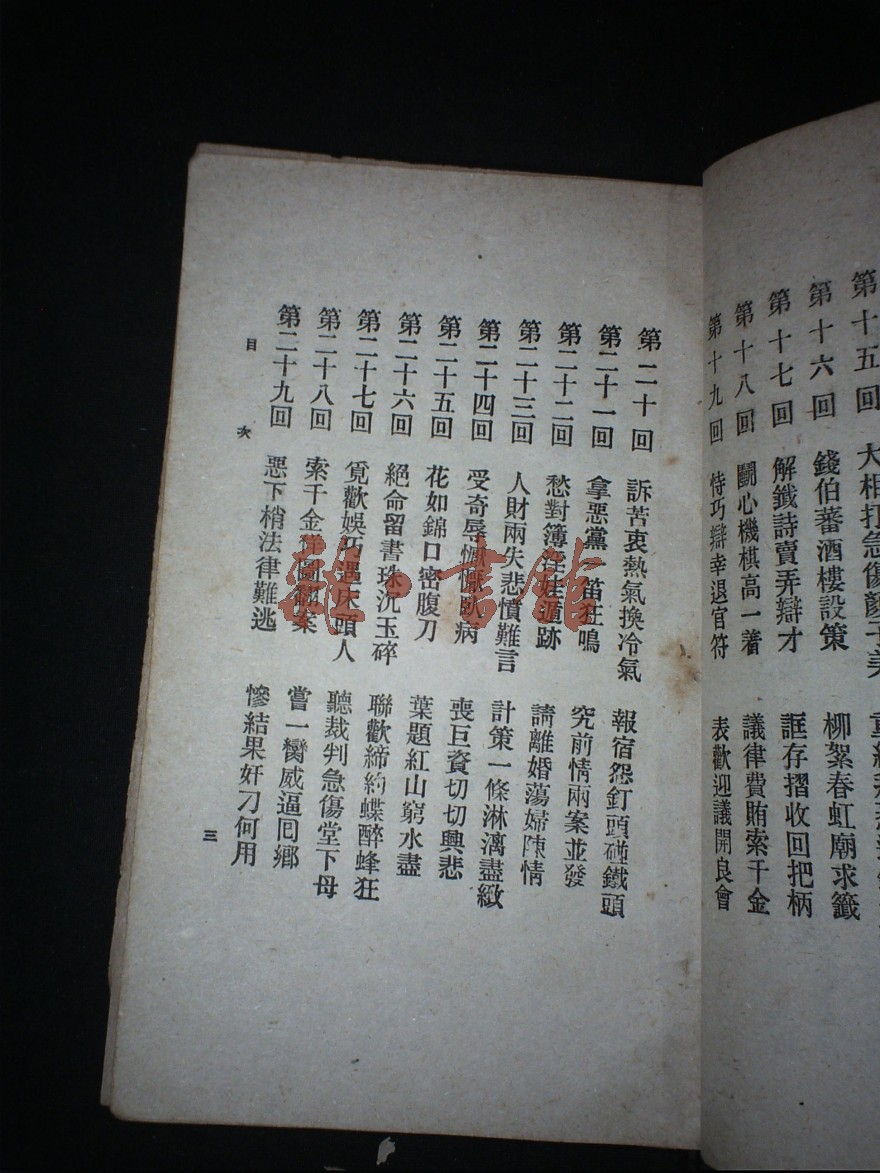 第十五回 大相打急傷顏子美
第十六回 錢伯蕃酒樓設策 柳絮春虹廟求籤
第十七回 解鐵詩賣弄辯才 誆存摺收回把柄
第十八回 鬭心機棋高一着 議律費賄索千金
第十九回 恃巧辯幸退官符 表歡迎議開良會
第二十回 訴苦衷熱氣換冷氣 報宿怨釘頭碰鐵頭
第二十一回 拿惡黨一笛狂鳴 究前情兩案並發
第二十二回 愁對簿淫娃遁跡 請離婚蕩婦陳情
第二十三回 人財兩失悲憤難言 計策一條淋漓盡緻
第二十四回 受奇辱懨懨臥病 喪巨資切切興悲
第二十五回 花如錦口密腹刀 葉題紅山窮水盡
第二十六回 絕命留書珠沉玉碎 聯歡締約蝶醉蜂狂
第二十七回 覓歡娛巧遇床頭人 聽裁判急傷堂下母
第二十八回 索千金祥圖翻案 嘗一臠威逼囘鄉
第二十九回 惡下梢法律難逃 慘結果奸刁何用
目次
三
書館